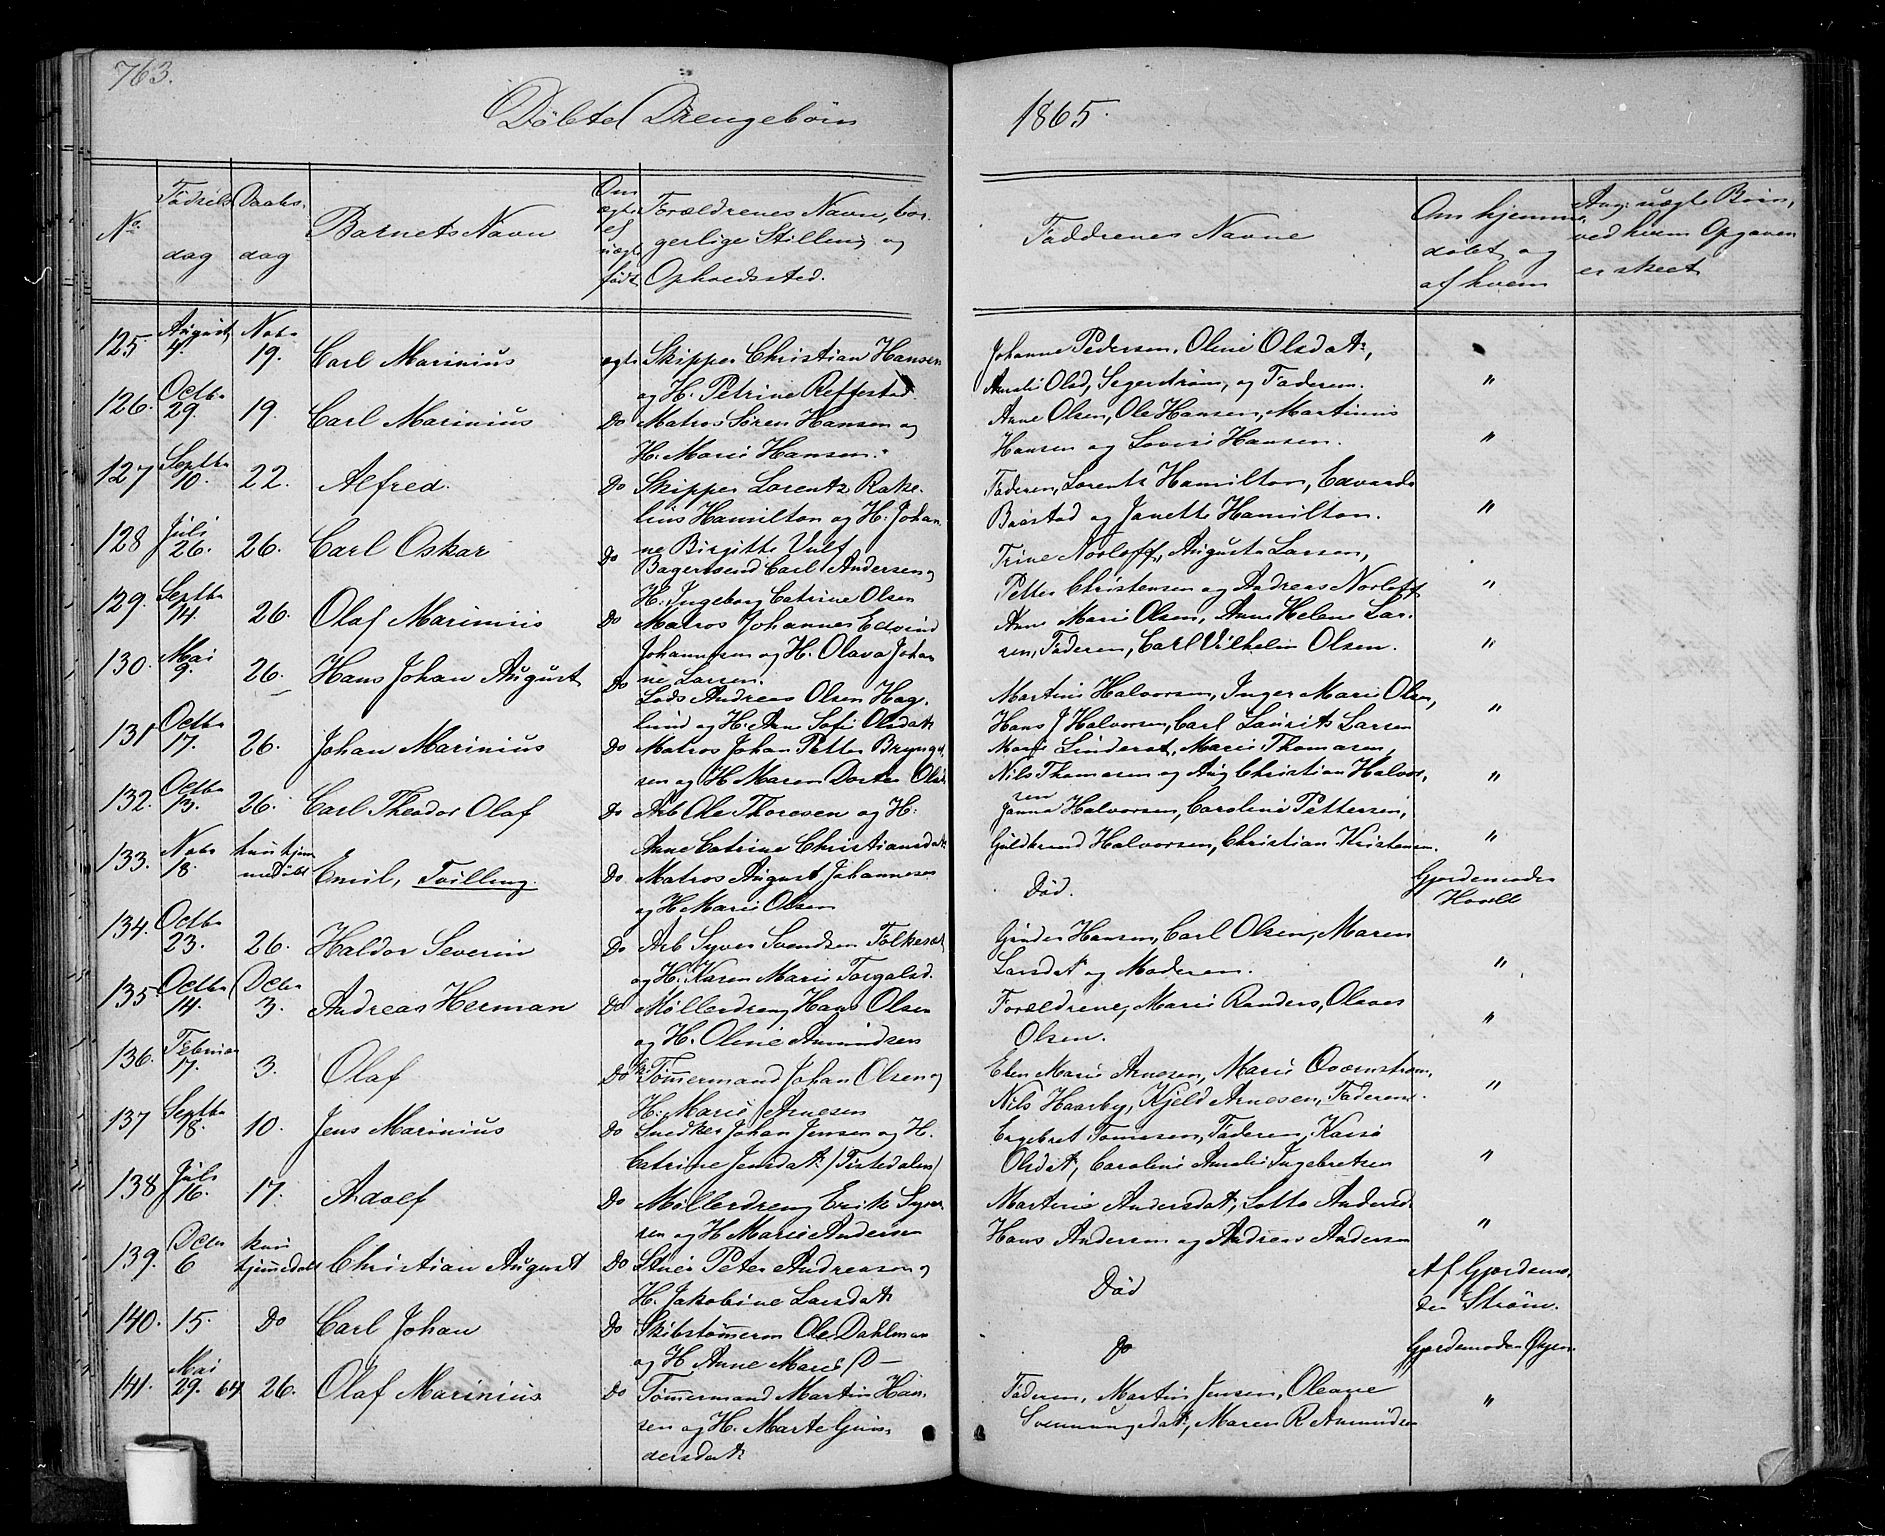 763.
Døbte Drengebørn
1865.
No.
Fødsels
dag
Daabs-
dag
Barnets Navn
Om
ægte
el.
uægte
født
Forældrenes Navn, bor-
gerlige Stilling og
Opholdssted.
Faddrenes Navne
Om hjemme-
døbt og
af hvem
Ang: uægte Børn,
ved hvem Opgaven
er skeet
125 August 9. Novbr 19. Carl Marinius ægte Skipper Christian Hansen
og H. Petrine Reffestad
Johanne Pedersen, Oline Olsdat,
Amalie Olsd, Segerstrøm, og Faderen. "
126. Octbr 29. 19. Carl Marinius Do Matros Søren Hansen og
H. Marie Hansen.
Anne Olsen, Ole Hansen, Martinus
Hansen og Lovise Hansen. "
127 Septbr 10. 22. Alfred. Do Skipper Lorentz Rake-
lius Hamilton og H. Johan-
ne Birgitte Vulf
Faderen, Lorentz Hamilton, Edvarda
Baastad og Janette Hamilton. "
128 Juli 26. 26. Carl Oskar Do Bagersvend Carl Andersen og
H. Ingeborg Catrine Olsen
Trine Norloff, Augusta Larsen,
Petter Christensen og Andreas Norloff. "
129. Septbr 14. 26. Olaf Marinius Do Matros Johannes Edvind
Johannesen og H. Olava Johan-
ne Larsen.
Anne Marie Olsen, Anne Helene Lar-
sen, Faderen, Carl Vilhelm Olsen. "
130. Mai 9. 26. Hans Johan August Do Lods Andreas Olsen Hag-
lund og H. Ane Sofie Olsdat
Martine Halvorsen, Inger Marie Olsen,
Hans J Halvorsen, Carl Laurits Larsen "
131 Octbr 17. 26. Johan Marinius Do Matros Johan Petter Brynge-
sen og H. Maren Dortea Olsd.
Marie Linderot, Marie Thomasen,
Nils Thomasen og Aug Christian Halvor-
sen "
132. Octbr 13. 26. Carl Theodor Olaf Do Arb Ole Thoresen og H:
Anne Catrine Christiansdat
Janna Halvorsen, Caroline Pettersen,
Guldbrand Halvorsen, Christian Kristensen. "
133. Novbr 18. kun hjem
medøbt Emil, Tvilling. Do Matros August Johannesen
og H Marie Olsen
Død.
Gjordemoder
Hvoslt
134. Octbr 23. 26. Haldor Severin Do Arb Syver Svendsen Folkesæt
og H. Karen Marie Torgalsd.
Gunder Hansen, Carl Olsen, Maren
Larsdat og Moderen. "
135 Octbr 14. Decbr 3. Andreas Herman Do Møllerdreng Hans Olsen
og H. Oline Amundsen
Forældrene, Marie Randers, Olaves
Olsen. "
136. Februar 17. 3. Olaf Do Tømmermand Johan Olsen og
H. Marie Arnesen
Elen Marie Arnesen, Marie Qværnstrøm,
Nils Haarby, Kjeld Arnesen, Faderen. "
137 Septbr 18. 10. Jens Marinius Do Snedker Johan Jensen og H.
Catrine Jensdat. (Tistedalen)
Engebret Tomesen, Faderen, Kaisa
Olsdat, Caroline Amalie Ingebretsen "
138 Juli 16. 17. Adolf Do Møllerdreng Erik Syver-
sen og H Marie Andersen
Martine Andersdat, Lotte Andersd.
Hans Andersen og Andreas Andersen "
139. Decbr 6 kun
hjemmedøbt Christian August Do Stuer Peter Andreasen og
H. Jakobine Larsdat
Død
Af Gjordemo-
der Strøm.
140. 15. Do Carl Johan Do Skibstømmerm Ole Dahlman
og H Anne Marie D—
Do
Gjordemoder Øgjer
141. Mai 29. 64 26. Olaf Marinius Do Tømmermand Martin Han-
sen og H. Marte Gun-
dersdat
Faderen, Martin Jensen, Oleane
Svennungsdat, Maren R Amundsen "